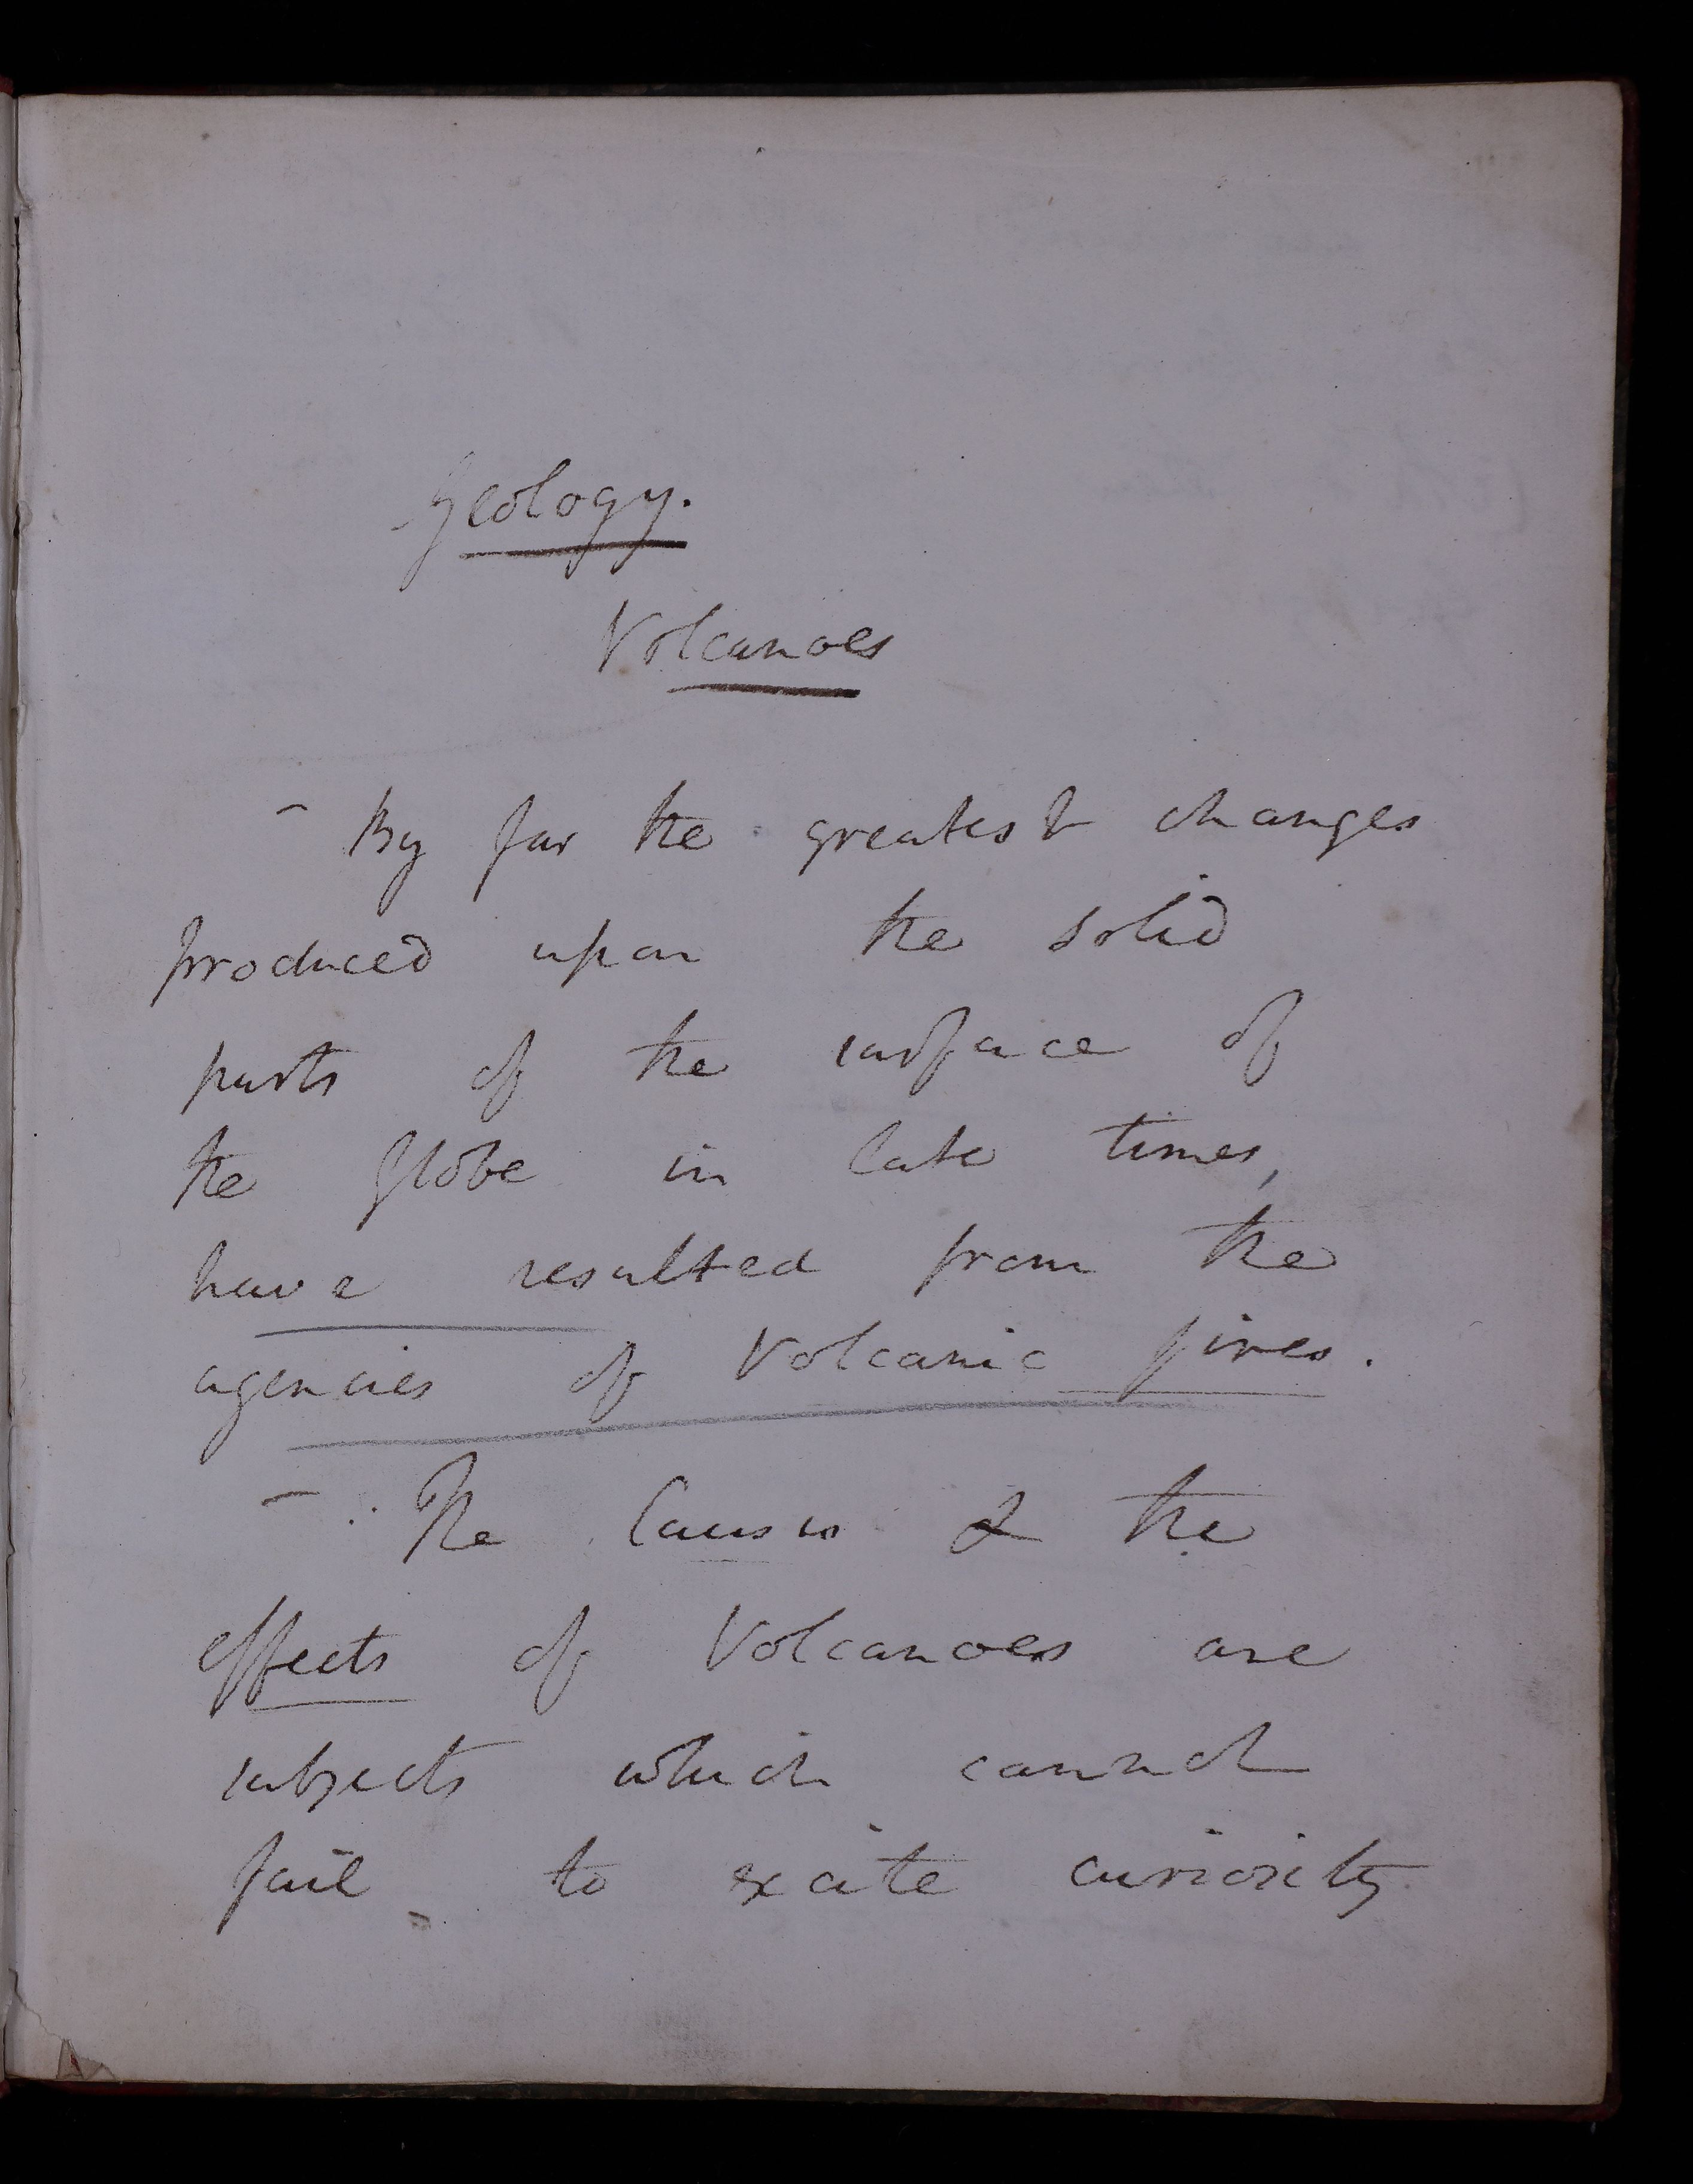 Geology.
Volcanoes
- By far the greatest changes
produced upon the solid
parts of the surface of
the globe in late times,
have resulted from the
agencies of Volcanic fires.
- The Causes & the
effects of Volcanoes are
subjects which cannot
fail to excite curiosity